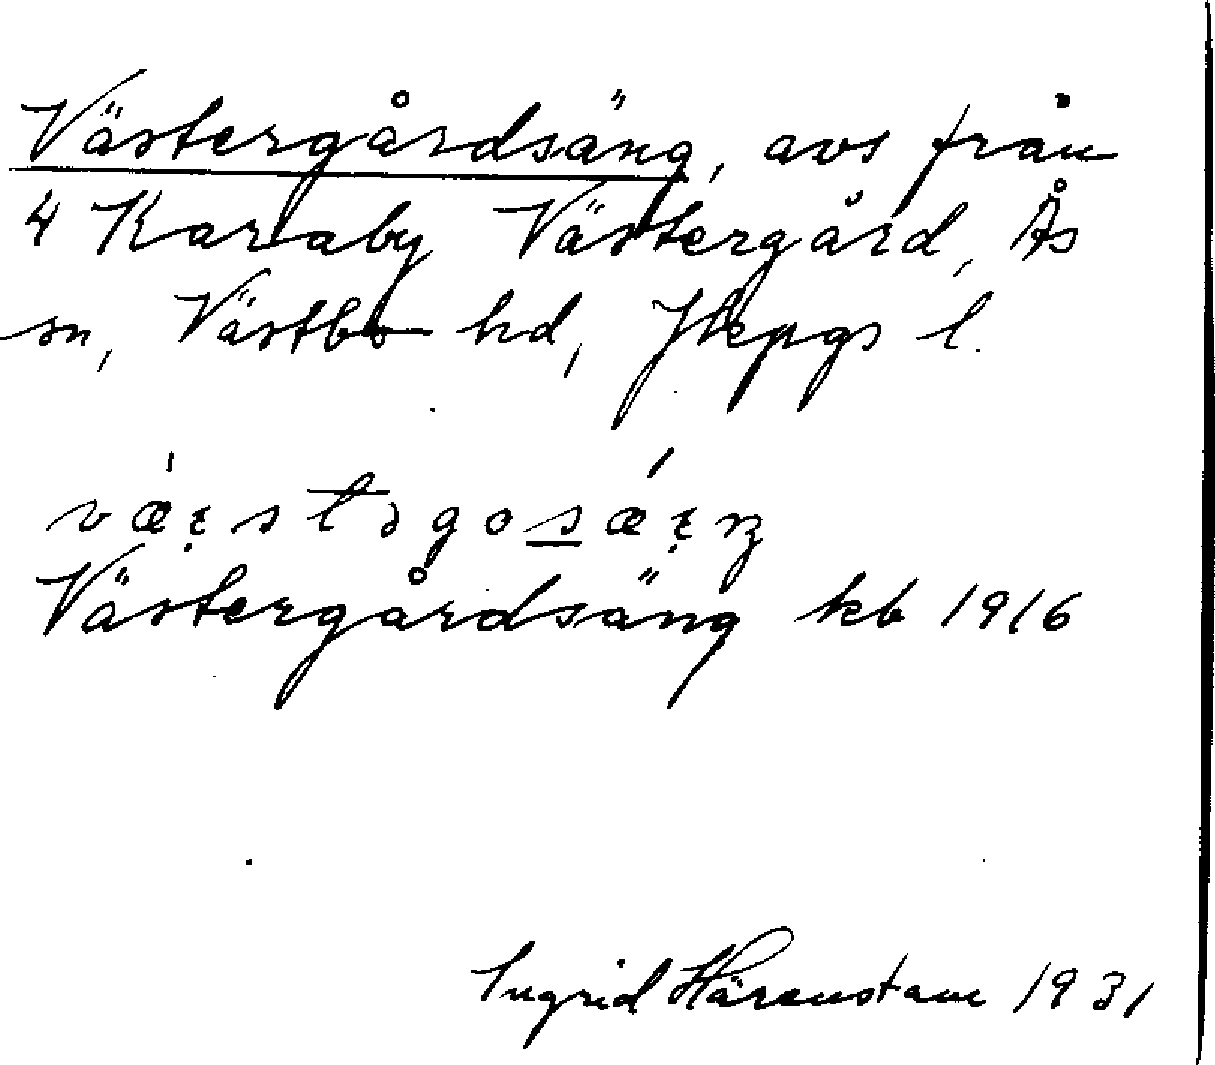 Västergårdsäng, avs från
4 Karaby Västergård, Ås
sn, Västbo hd, Jkpgs l.
Västergårdsäng kb 1916
Ingrid Härenstam 1931